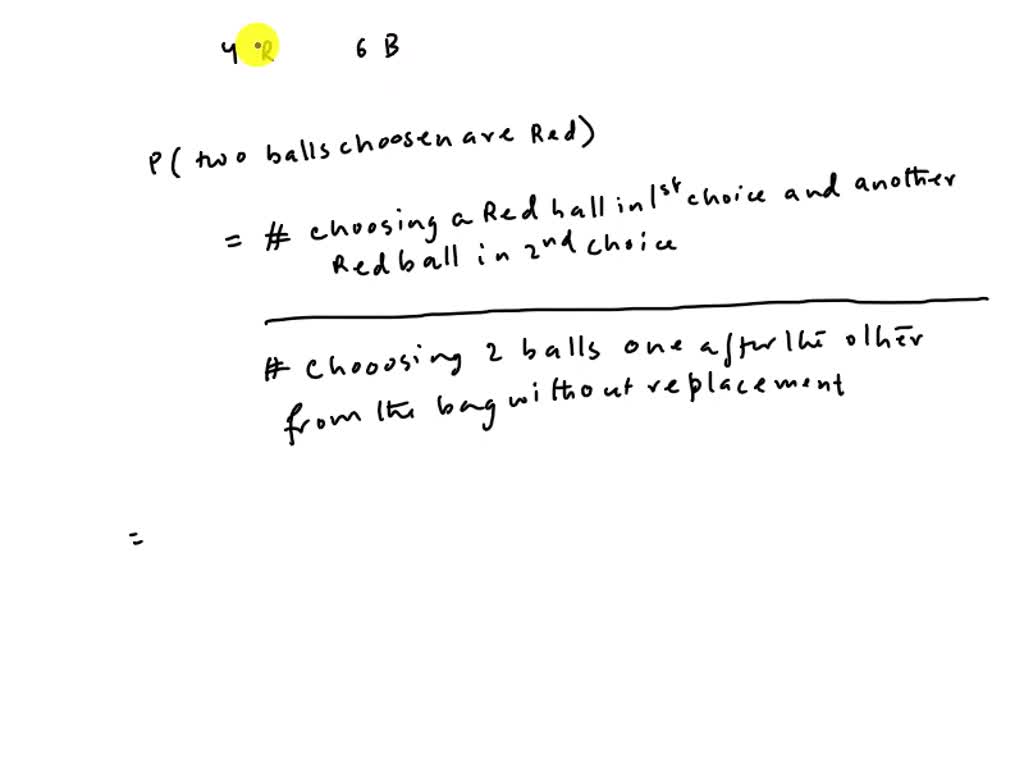 4 R 6 B
P( two balls choosen are Red)
= # choosing a Red ball in 1st choice and another
Red ball in 2nd choice
# chooosing 2 balls one after the other
from the bag without replacement
=